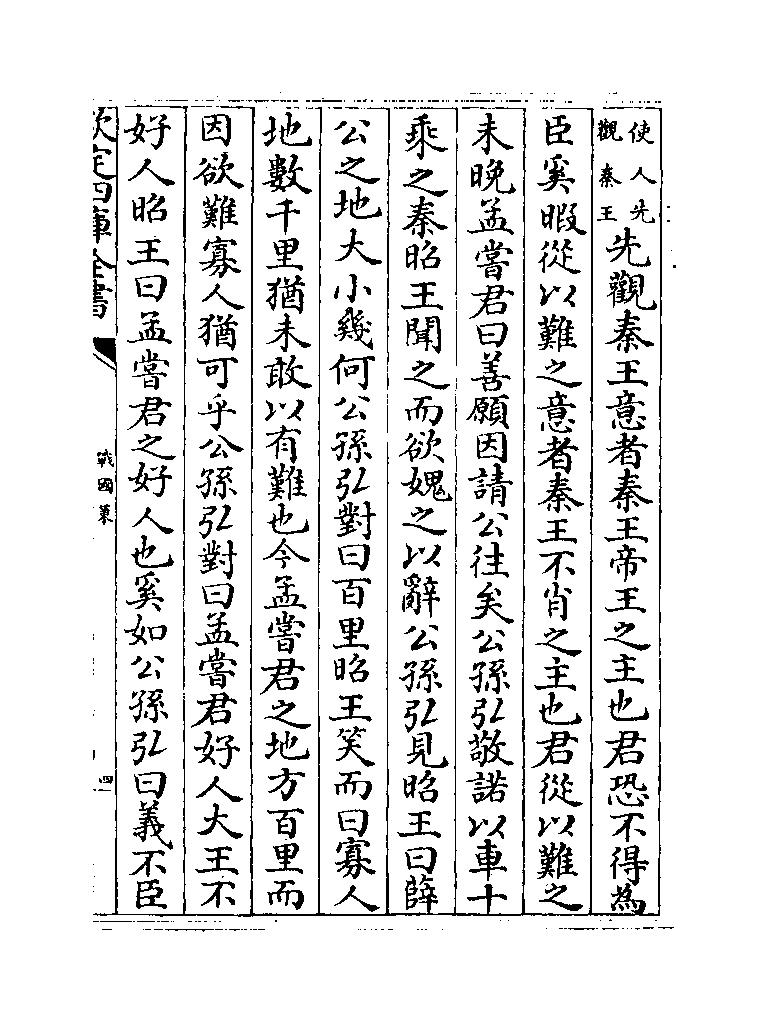 使人先觀秦王先觀秦王意者秦王帝王之主也君恐不得為
臣奚暇從以難之意者秦王不肖之主也君從以難之
未晚孟嘗君曰善願因請公往矣公孫弘敬諾以車十
乘之秦昭王聞之而欲媿之以辭公孫弘見昭王曰薛
公之地大小幾何公孫弘對曰百里昭王笑而曰寡人
地數千里猶未敢以有難也今孟嘗君之地方百里而
因欲難寡人猶可乎公孫弘對曰孟嘗君好人大王不
好人昭王曰孟嘗君之好人也奚如公孫弘曰義不臣
欽定四庫全書
戰國策
四